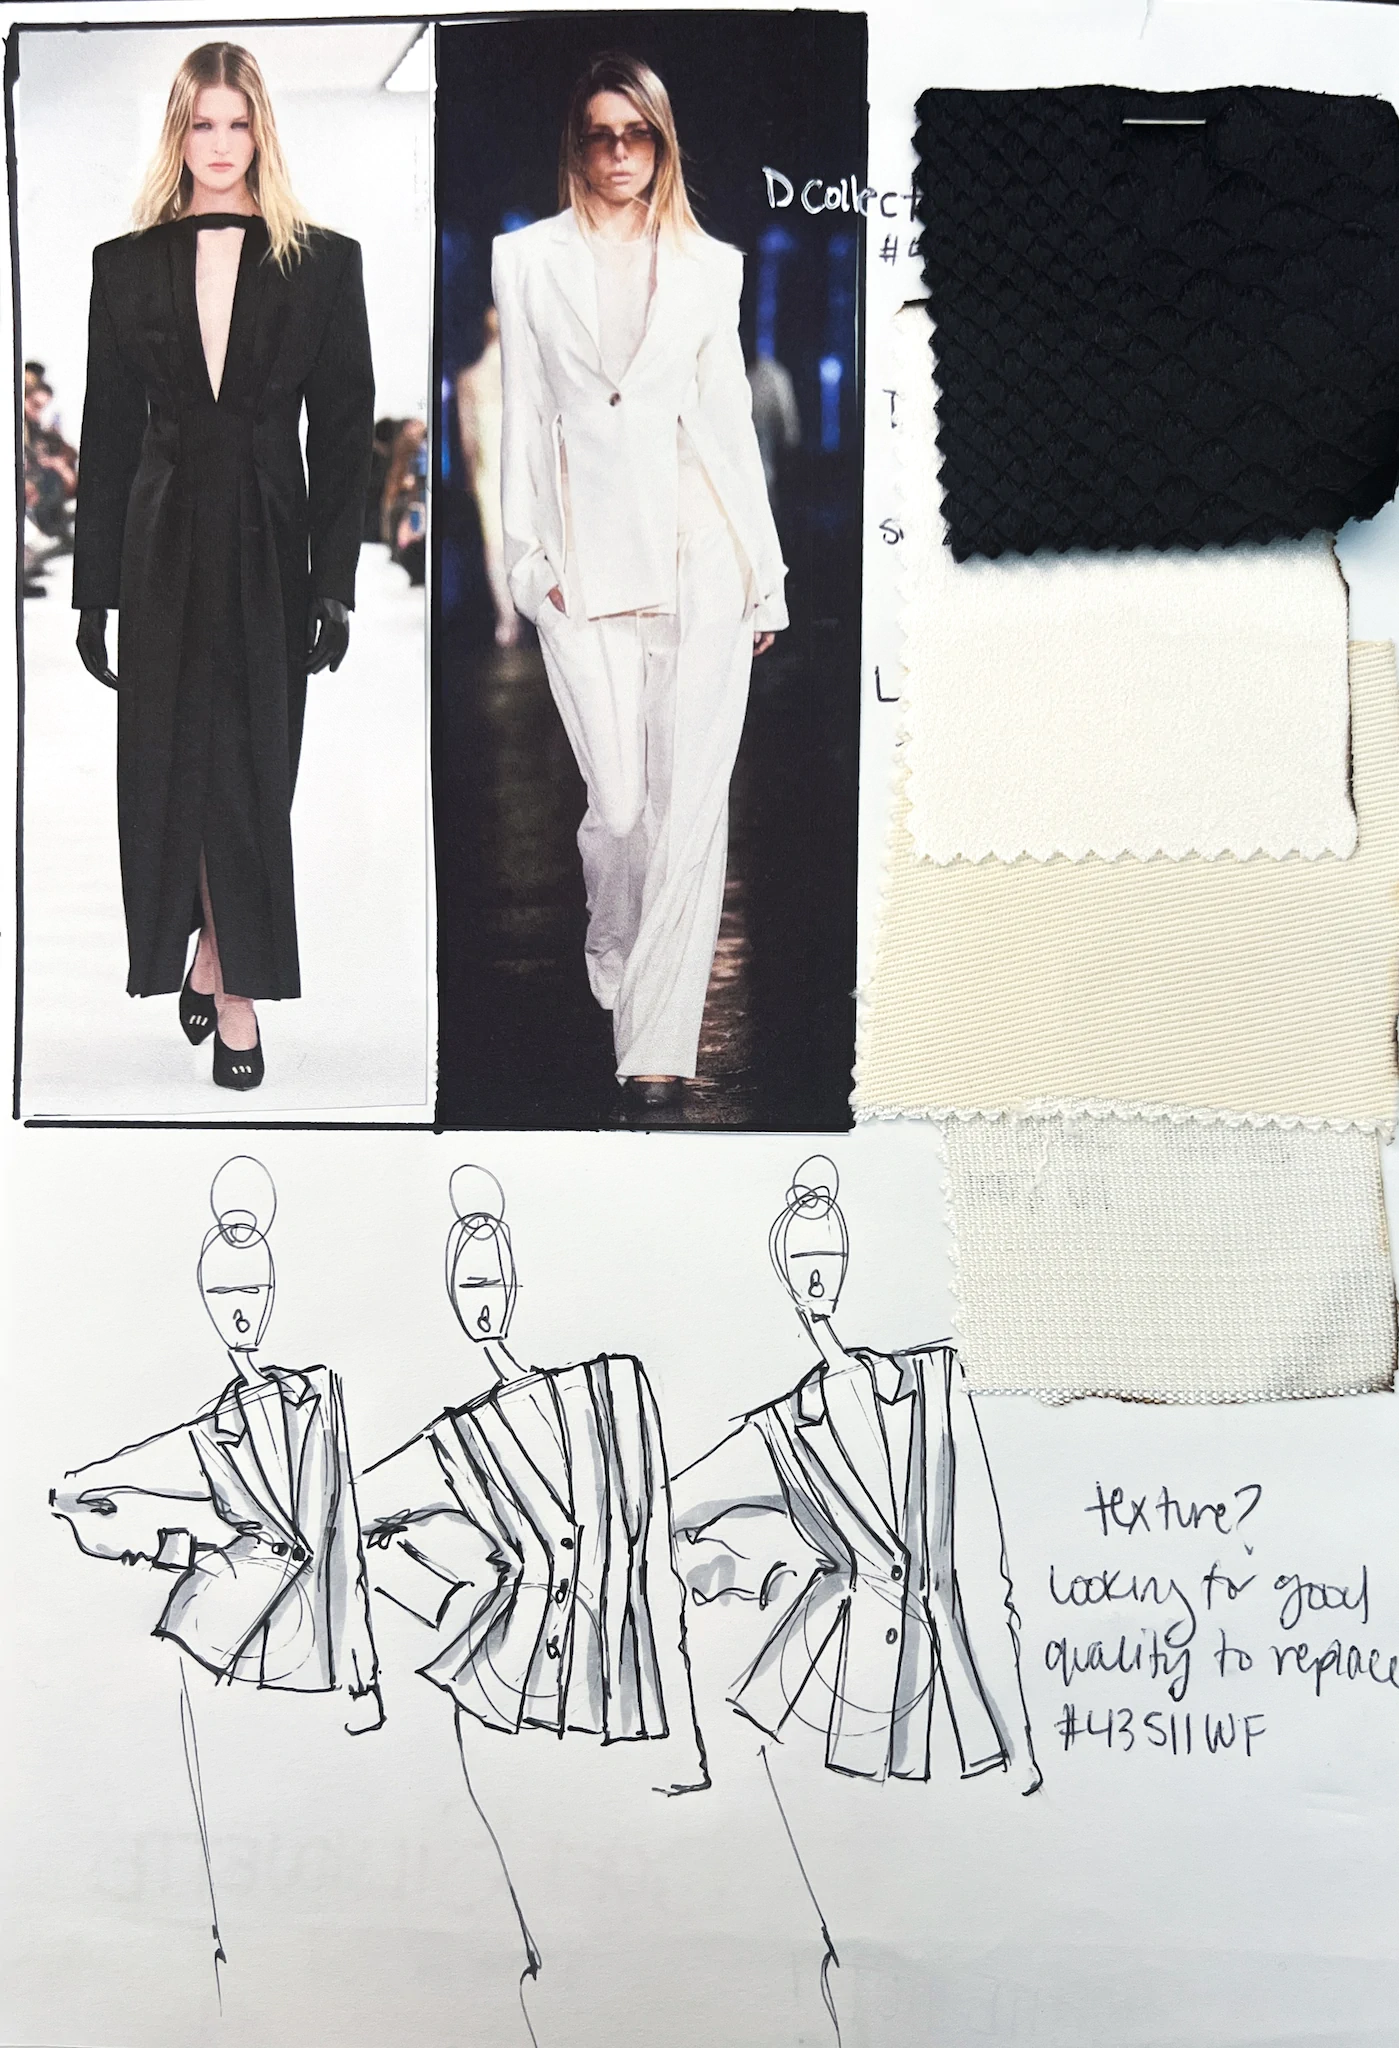 D Collect
#
T
S
L
texture?
looking for good
quality to replace
#43511WF